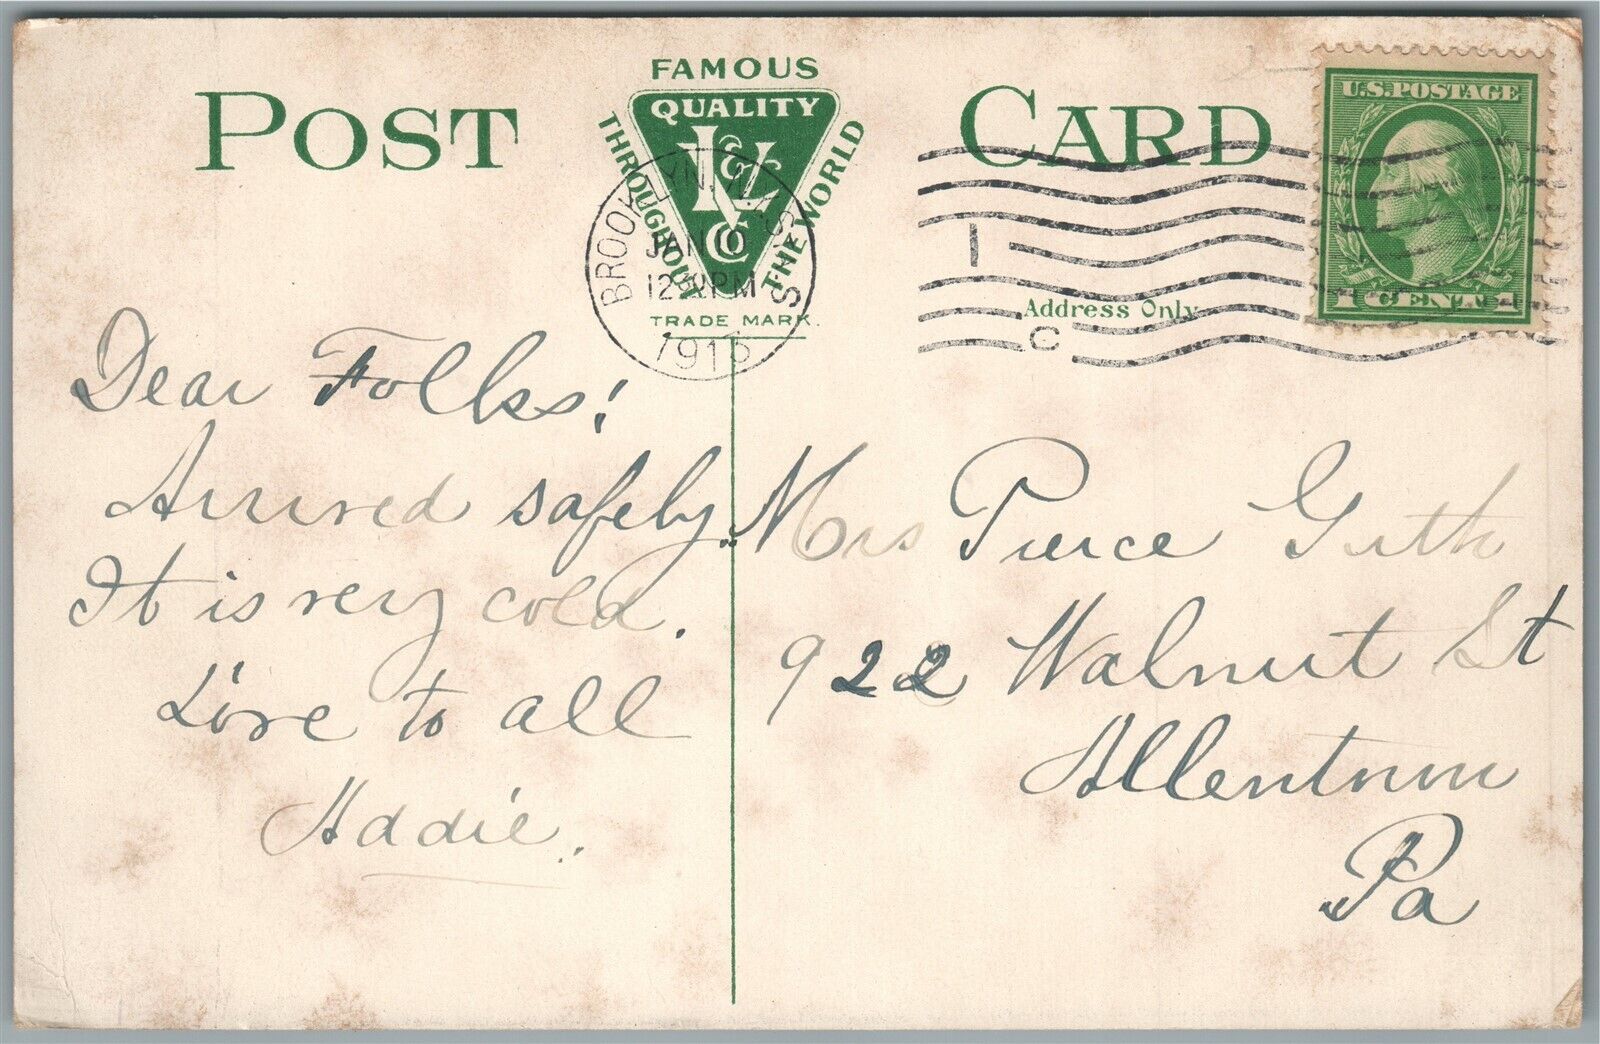 POST CARD
FAMOUS
QUALITY
THROUGHOUT THE WORLD
TRADE MARK.
BROOKLYN, N.Y.
JAN 10
U.S. POSTAGE
1 CENT 1
1
C
Address Only
Dear Folks!
Arrived safely.
It is very cold.
Love to all
Addie.
Mrs Pierce Guth
922 Walnut St
Allentown
Pa